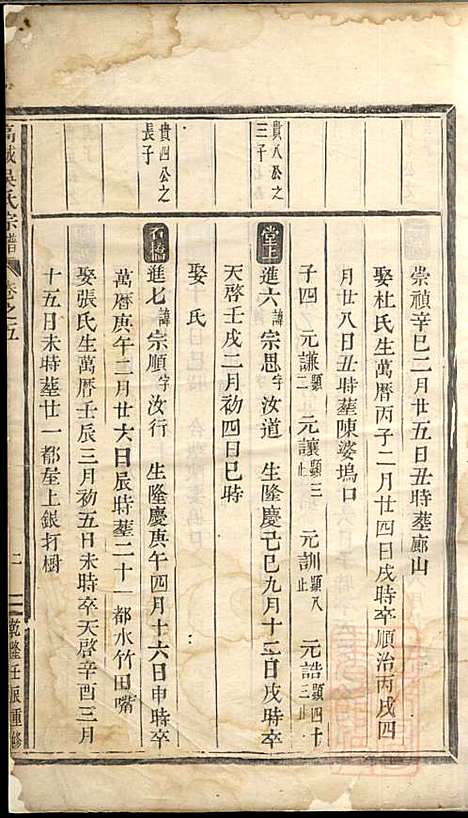 崇禎辛巳二月廿五日丑時葬廊山
娶杜氏生萬曆丙子二月廿四日戌時卒順治丙戌四
月廿八日丑時葬陳婆塢口
子四 元謙顯二 元讓顯三止 元訓顯八止 元誥顯四十三止
貴八公之三子
堂上 進六諱宗思字汝道 生隆慶己巳九月十二日戌時卒
天啓壬戌二月初四日巳時
娶 氏
貴四公之長子
石橋 進七諱宗順字汝行 生隆慶庚午四月十六日申時卒
萬曆庚午二月廿六日辰時葬二十一都水竹田嘴
娶張氏生萬曆壬辰三月初五日未時卒天啓辛酉三月
十五日未時葬廿一都屋上銀打橱
高城吳氏宗譜 卷之五 乾隆壬辰重修